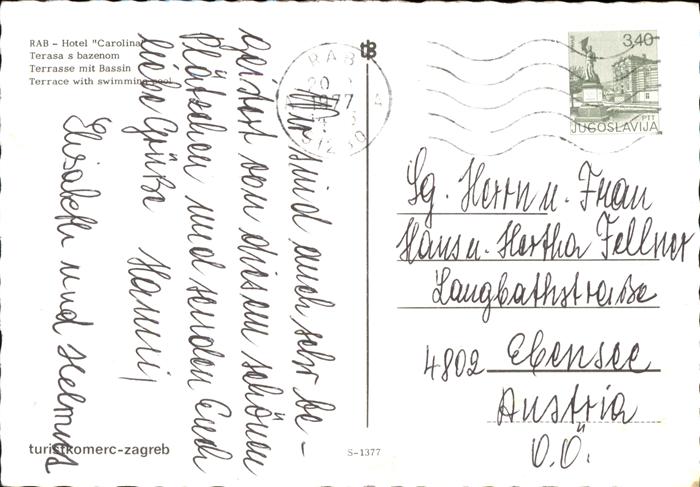 RAB - Hotel "Carolina"
Terasa s bazenom
Terrasse mit Bassin
Terrace with swimming pool
RAB
1977
3,40
PTT
JUGOSLAVIJA
Wir sind auch sehr be-
geistert von diesem schönen
Plätzchen und senden Euch
liebe Grüße Hanni,
Elisabeth und Helmut
Sg. Herrn u. Frau
Hans u. Hertha Fellner
Langbathstraße
4802 Ebensee
Austria
O.Ö.
turistkomerc-zagreb
S-1377